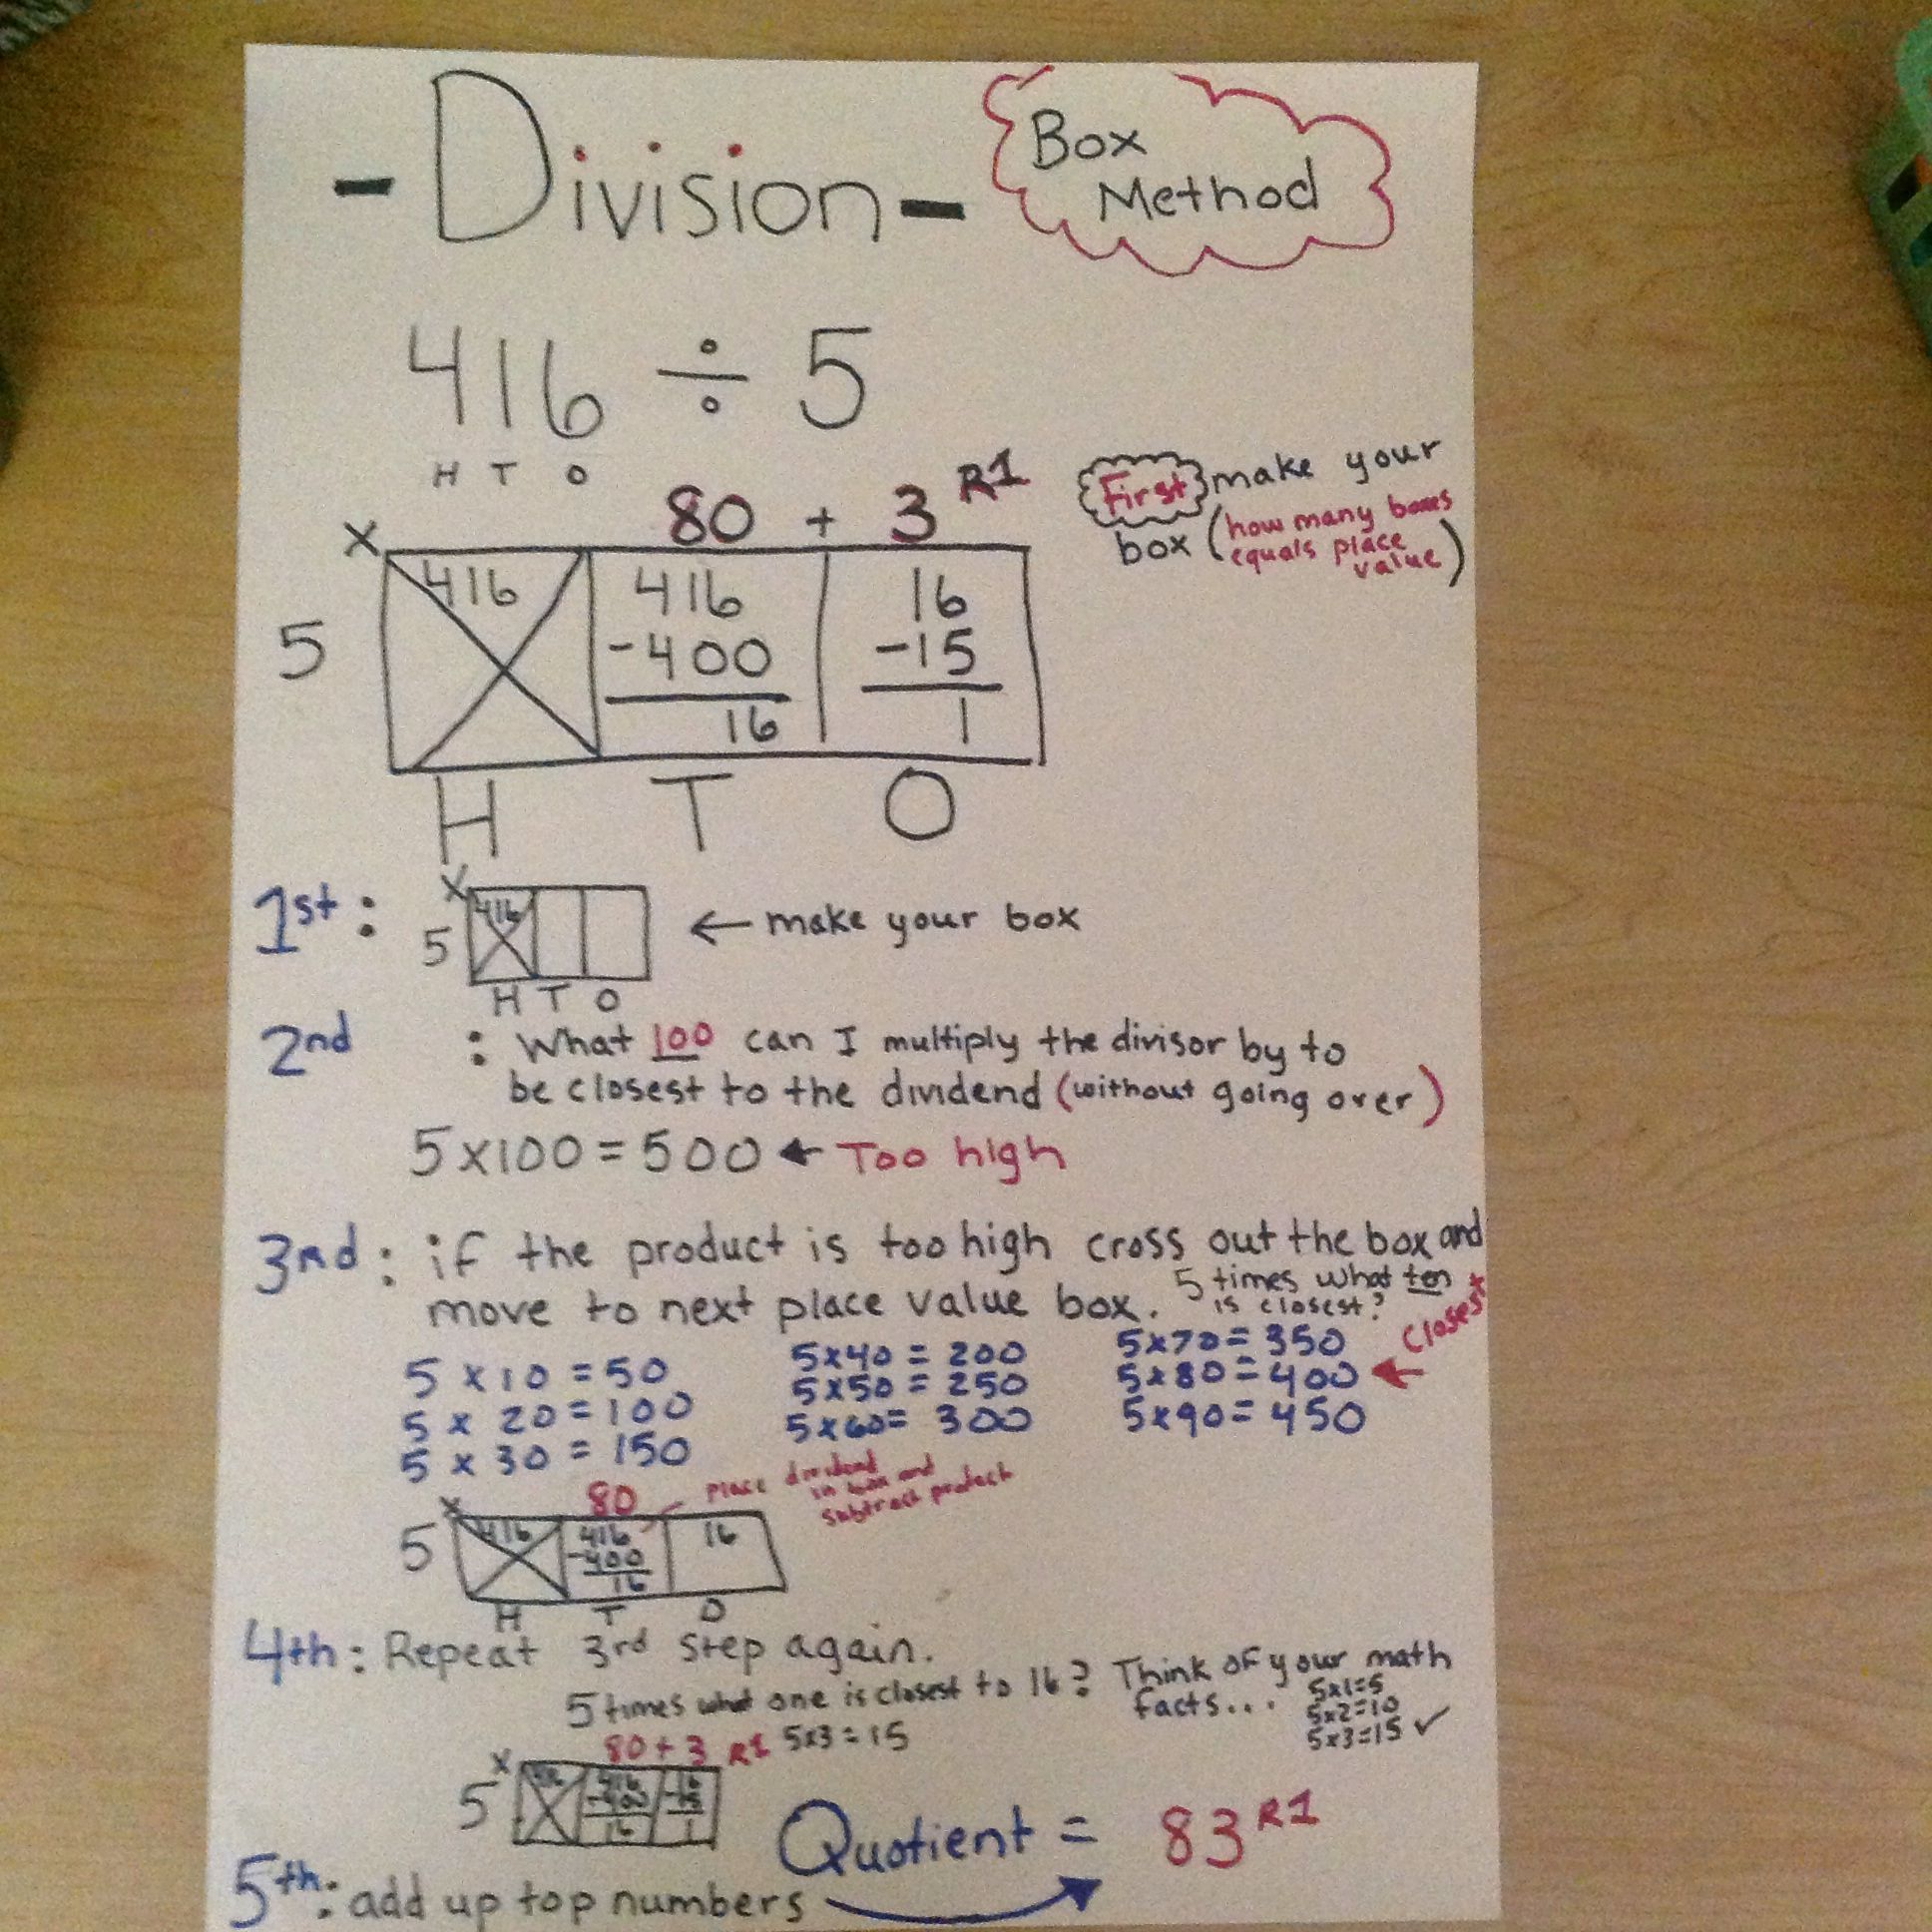 - Division -
Box
Method
416 ÷ 5
H T O
80 + 3 R1
First make your
box (how many boxes
equals place
value)
x
5
416
416
-400
16
16
-15
1
H T O
1st:
x
5
416
H T O
← make your box
2nd : What 100 can I multiply the divisor by to
be closest to the dividend (without going over)
5x100=500 ← Too high
3rd: if the product is too high cross out the box and
move to next place value box. 5 times what ten
is closest?
5 x 10 = 50
5 x 20 = 100
5 x 30 = 150
5x40 = 200
5x50 = 250
5x60= 300
5x70= 350
5x80=400 ← Closest
5x90=450
80
Place dividend
in box and
subtract
x
5
416
416
-400
16
16
H T O
4th: Repeat 3rd step again.
5 times what one is closest to 16? Think of your math
facts...
5x1=5
5x2=10
5x3=15 ✓
80+3 R1 5x3=15
x
5
416
416
-400
16
16
-15
1
Quotient = 83 R1
5th: add up top numbers